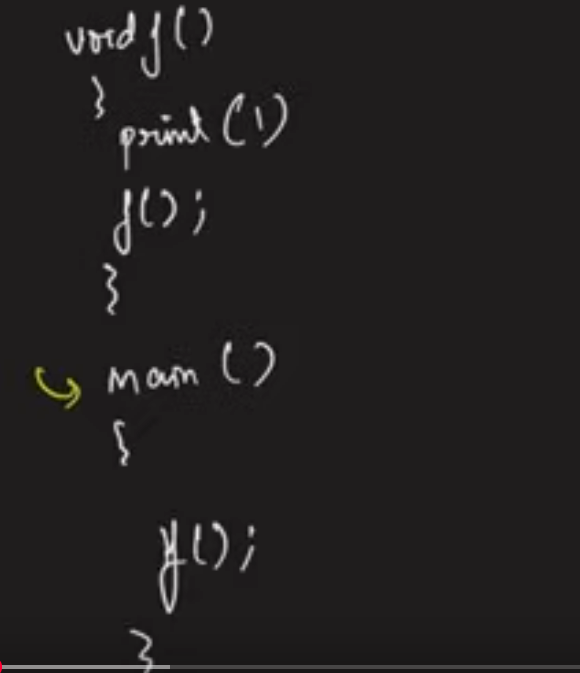 void f()
}
print (1)
f();
}
main ()
{
f();
}